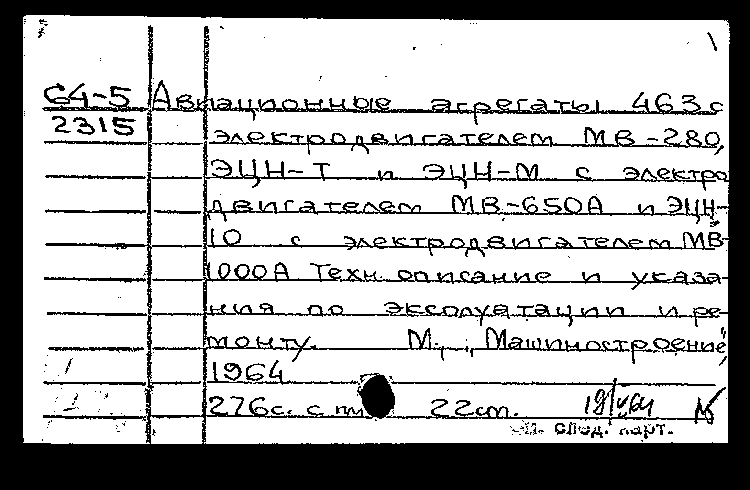 64-5 Авиационные агрегаты 463 с
2315 электродвигателем МВ-280,
ЭЦН-Т и ЭЦН-М с электро
двигателем МВ-650А и ЭЦН-
10 с электродвигателем МВ-
1000А Техн. описание и указа-
ния по эксплуатации и ре-
монту. М., „Машиностроение",
1964
276с. с пл 22 см. 19/V 64
см. след. карт.